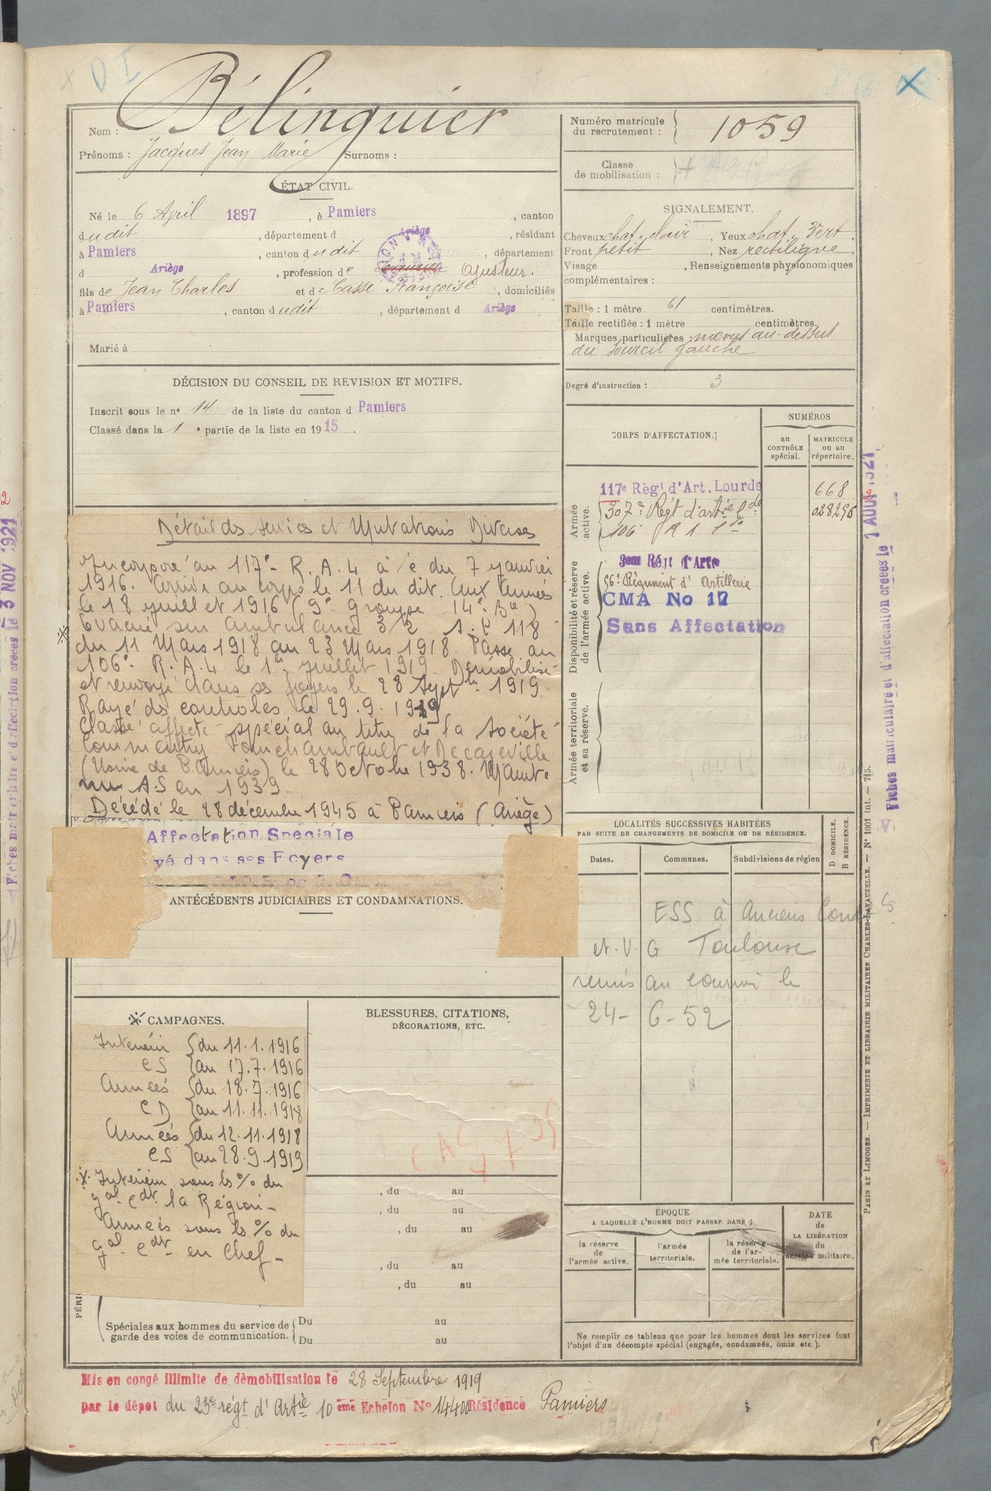 Nom : Bélinguier
Prénoms : Jacques Jean Marie Surnoms :
Numéro matricule du recrutement : 1059
Classe de mobilisation :
ÉTAT CIVIL.
Né le 6 April 1897, à Pamiers, canton
dudit, département d Ariège, résidant
à Pamiers, canton dudit, département
d Ariège, profession de ajusteur.
fils de Jean Charles et de Casse Françoise, domiciliés
à Pamiers, canton dudit, département d Ariège
Marié à
SIGNALEMENT.
Cheveux chat. clair, Yeux chat. vert.
Front petit, Nez rectiligne.
Visage , Renseignements physionomiques
complémentaires :
Taille : 1 mètre 61 centimètres.
Taille rectifiée : 1 mètre centimètres.
Marques particulières : nævus au-dessus
du sourcil gauche
Degré d'instruction : 3
DÉCISION DU CONSEIL DE REVISION ET MOTIFS.
Inscrit sous le n° 14 de la liste du canton d Pamiers
Classé dans la 1e partie de la liste en 1915.
CORPS D'AFFECTATION.
NUMÉROS
au CONTRÔLE spécial.
MATRICULE ou au répertoire.
Armée active.
117e Règt d'Art. Lourde 668
307e Régt d'artie Lde 028296
106e R A Lde
Disponibilité et réserve de l'armée active.
3em Régt d'Arte
56e Régiment d'Artillerie
CMA No 17
Sans Affectation
Armée territoriale et sa réserve.
Détail des services et Mutations Diverses
Incorporé au 117e R.A.L à c/ du 7 janvier
1916. Arrivé au corps le 11 du dit. Aux Armées
le 18 juillet 1916 (9e groupe 14e Bie)
Evacué sur ambulance 3/2 S.P 118
du 11 Mars 1918 au 23 Mars 1918. Passé au
106e R.A.L le 1er juillet 1919. Démobilisé
et renvoyé dans ses foyers le 28 Septbre 1919.
Rayé des contrôles le 29.9.1939
Classé affecté spécial au titre de la Société
Commentry Fourchambault et Decazeville
(Usine de Pamiers) le 28 Octobre 1938. Mainte
nu AS en 1939
Décédé le 28 décembre 1945 à Pamiers (Ariège)
Affectation Spéciale
yé dans ses Foyers
ANTÉCÉDENTS JUDICIAIRES ET CONDAMNATIONS.
LOCALITÉS SUCCESSIVES HABITÉES
PAR SUITE DE CHANGEMENTS DE DOMICILE OU DE RÉSIDENCE.
Dates. Communes. Subdivisions de région
D DOMICILE.
R RÉSIDENCE.
ESS à Anciens Comb
et V. G Toulouse
remis au courrier le
24-6-52
CAMPAGNES.
Intérieur { du 11.1.1916
CS { au 17.7.1916
Armées { du 18.7.1916
CD { au 11.11.1918
Armées { du 12.11.1918
CS { au 28.9.1919
Intérieur sous ls % du
gal cdt la Région-
Armées sous ls % du
gal cdt en Chef-
BLESSURES, CITATIONS,
DÉCORATIONS, ETC.
, du au
, du au
, du au
, du au
, du au
Spéciales aux hommes du service de garde des voies de communication. { Du au
Du au
ÉPOQUE
A LAQUELLE L'HOMME DOIT PASSER DANS :
la réserve de l'armée active.
l'armée territoriale.
la réserve de l'armée territoriale.
DATE de LA LIBÉRATION du service militaire.
Ne remplir ce tableau que pour les hommes dont les services font
l'objet d'un décompte spécial (engagés, condamnés, omis etc.).
Mis en congé illimité de démobilisation le 28 Septembre 1919
par le dépot du 23e régt d'Artie 10 ème Echelon No 14400 Résidence Pamiers
PARIS ET LIMOGES. — IMPRIMERIE ET LIBRAIRIE MILITAIRES CHARLES-LAVAUZELLE. — N° 1001 int. — 715.
Fiches matriculaire et d'affectation créées le 1 AOUT 1921
Fiches matriculaire et d'affection créées le 3 NOV 1921